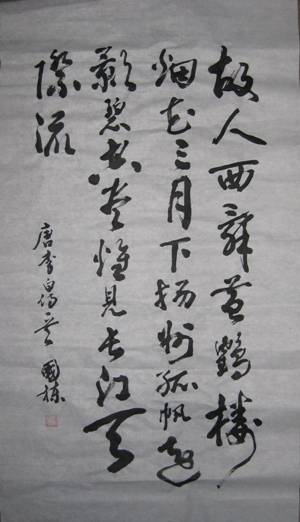 故人西辞黄鶴樓
烟花三月下揚州孤帆遠
影碧空尽惟見长江天
際流
唐李白 國栋